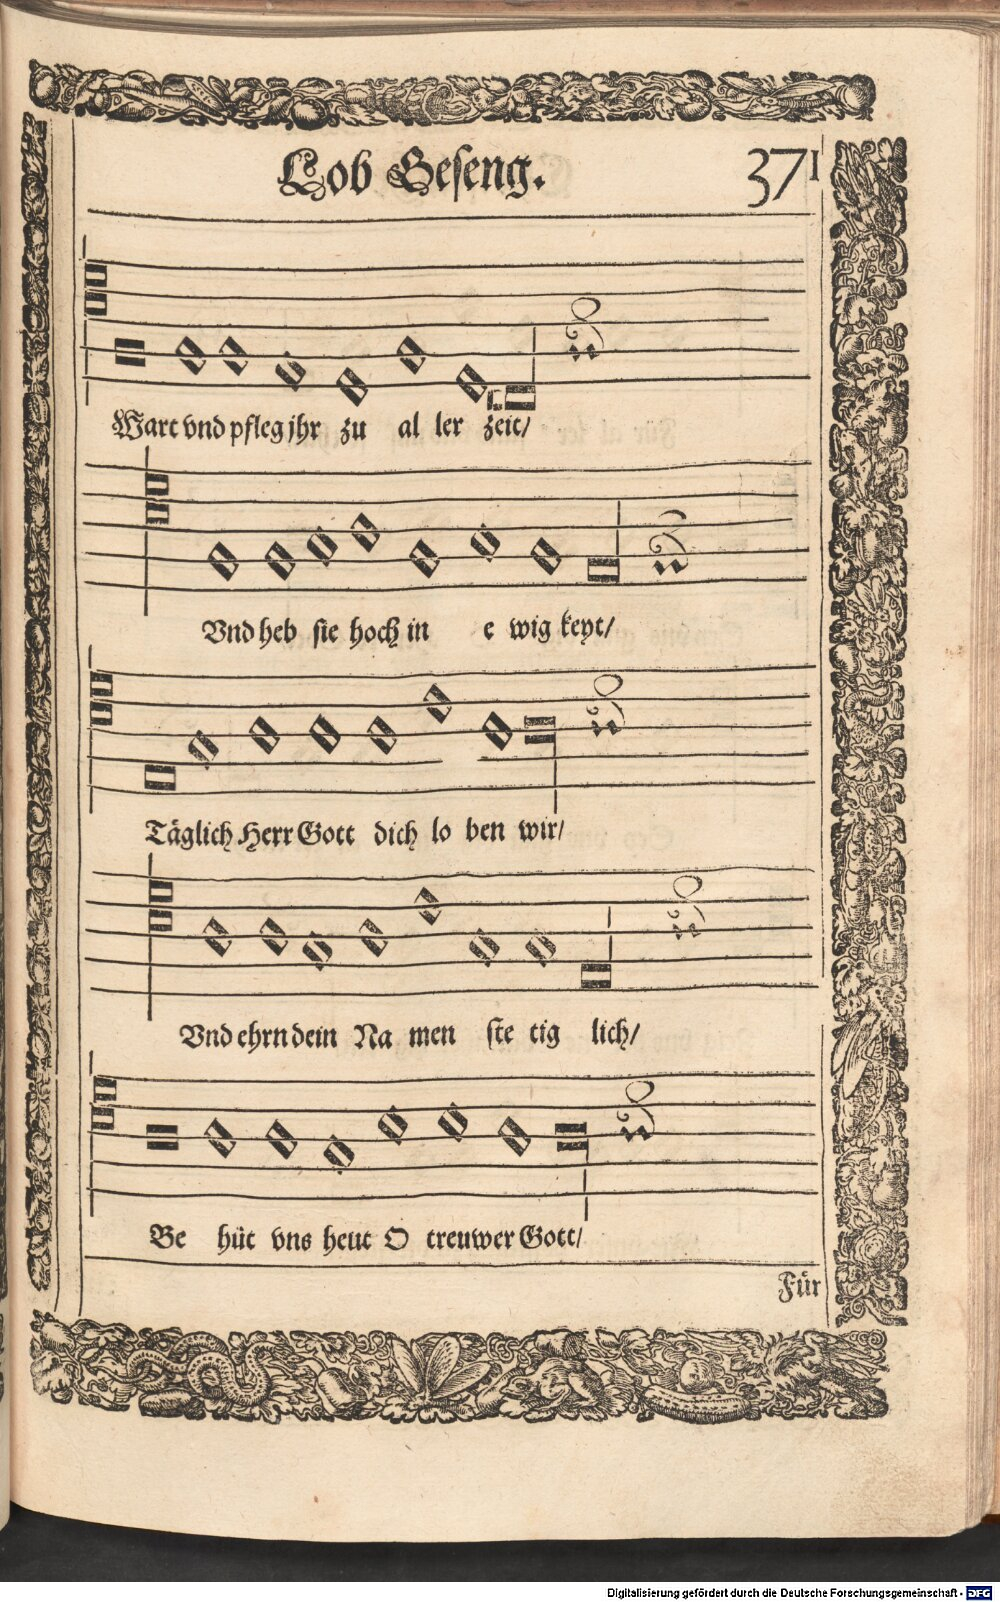 Lob Geseng. 371
Wart vnd pfleg jhr zu al ler zeit/
Vnd heb sie hoch in e wig keyt/
Täglich Herr Gott dich lo ben wir/
Vnd ehrn dein Na men ste tig lich/
Be hüt vns heut O treuwer Gott/
Für
Digitalisierung gefördert durch die Deutsche Forschungsgemeinschaft - DFG